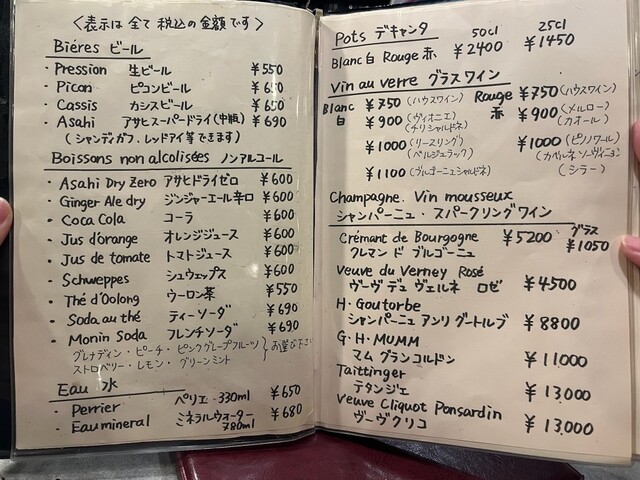 〈表示は全て税込の金額です〉
Biéres ビール
・Pression 生ビール ¥550
・Picon ピコンビール ¥650
・Cassis カシスビール ¥650
・Asahi アサヒスーパードライ(中瓶) ¥690
(シャンディガフ、レッドアイ等できます)
Boissons non alcolisées ノンアルコール
・Asahi Dry Zero アサヒドライゼロ ¥600
・Ginger Ale dry ジンジャーエール辛口 ¥600
・Coca Cola コーラ ¥600
・Jus d'orange オレンジジュース ¥600
・Jus de tomate トマトジュース ¥600
・Schweppes シュウェップス ¥600
・Thé d'Oolong ウーロン茶 ¥550
・Soda au thé ティーソーダ ¥690
・Monin Soda フレンチソーダ ¥690
グレナディン・ピーチ・ピンクグレープフルーツ
ストロベリー・レモン・グリーンミント } お選び下さい
Eau 水
・Perrier ペリエ-330ml ¥650
・Eau mineral ミネラルウォーター 780ml ¥680
Pots デキャンタ 50cl 25cl
Blanc白 Rouge赤 ¥2400 ¥1450
Vin au verre グラスワイン
Blanc 白 ¥750 (ハウスワイン)
¥900 (ヴィオニエ) (チリシャルドネ)
¥1000 (リースリング) (ベルジュラック)
¥1100 (ブルゴーニュシャルドネ)
Rouge 赤 ¥750 (ハウスワイン)
¥900 (メルロー) (カオール)
¥1000 (ピノノワール) (カベルネソーヴィニョン) (シラー)
Champagne. Vin mousseux
シャンパーニュ・スパークリングワイン
Crémant de Bourgogne ¥5200 グラス ¥1050
クレマン ド ブルゴーニュ
Veuve du Verney Rosé
ヴーヴ デュ ヴェルネ ロゼ ¥4500
H・Goutorbe
シャンパーニュ アンリ グートルブ ¥8800
G・H・MUMM
マム グランコルドン ¥11000
Taittinger
テタンジェ ¥13,000
Veuve Cliquot Ponsardin
ヴーヴクリコ ¥13,000